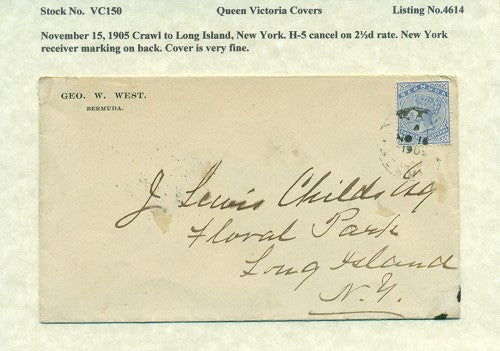 Stock No. VC150 Queen Victoria Covers Listing No.4614
November 15, 1905 Crawl to Long Island, New York. H-5 cancel on 2½d rate. New York
receiver marking on back. Cover is very fine.
GEO. W. WEST.
BERMUDA.
BERMUDA
1905
J Lewis Childs Esq
Floral Park
Long Island
N.Y.